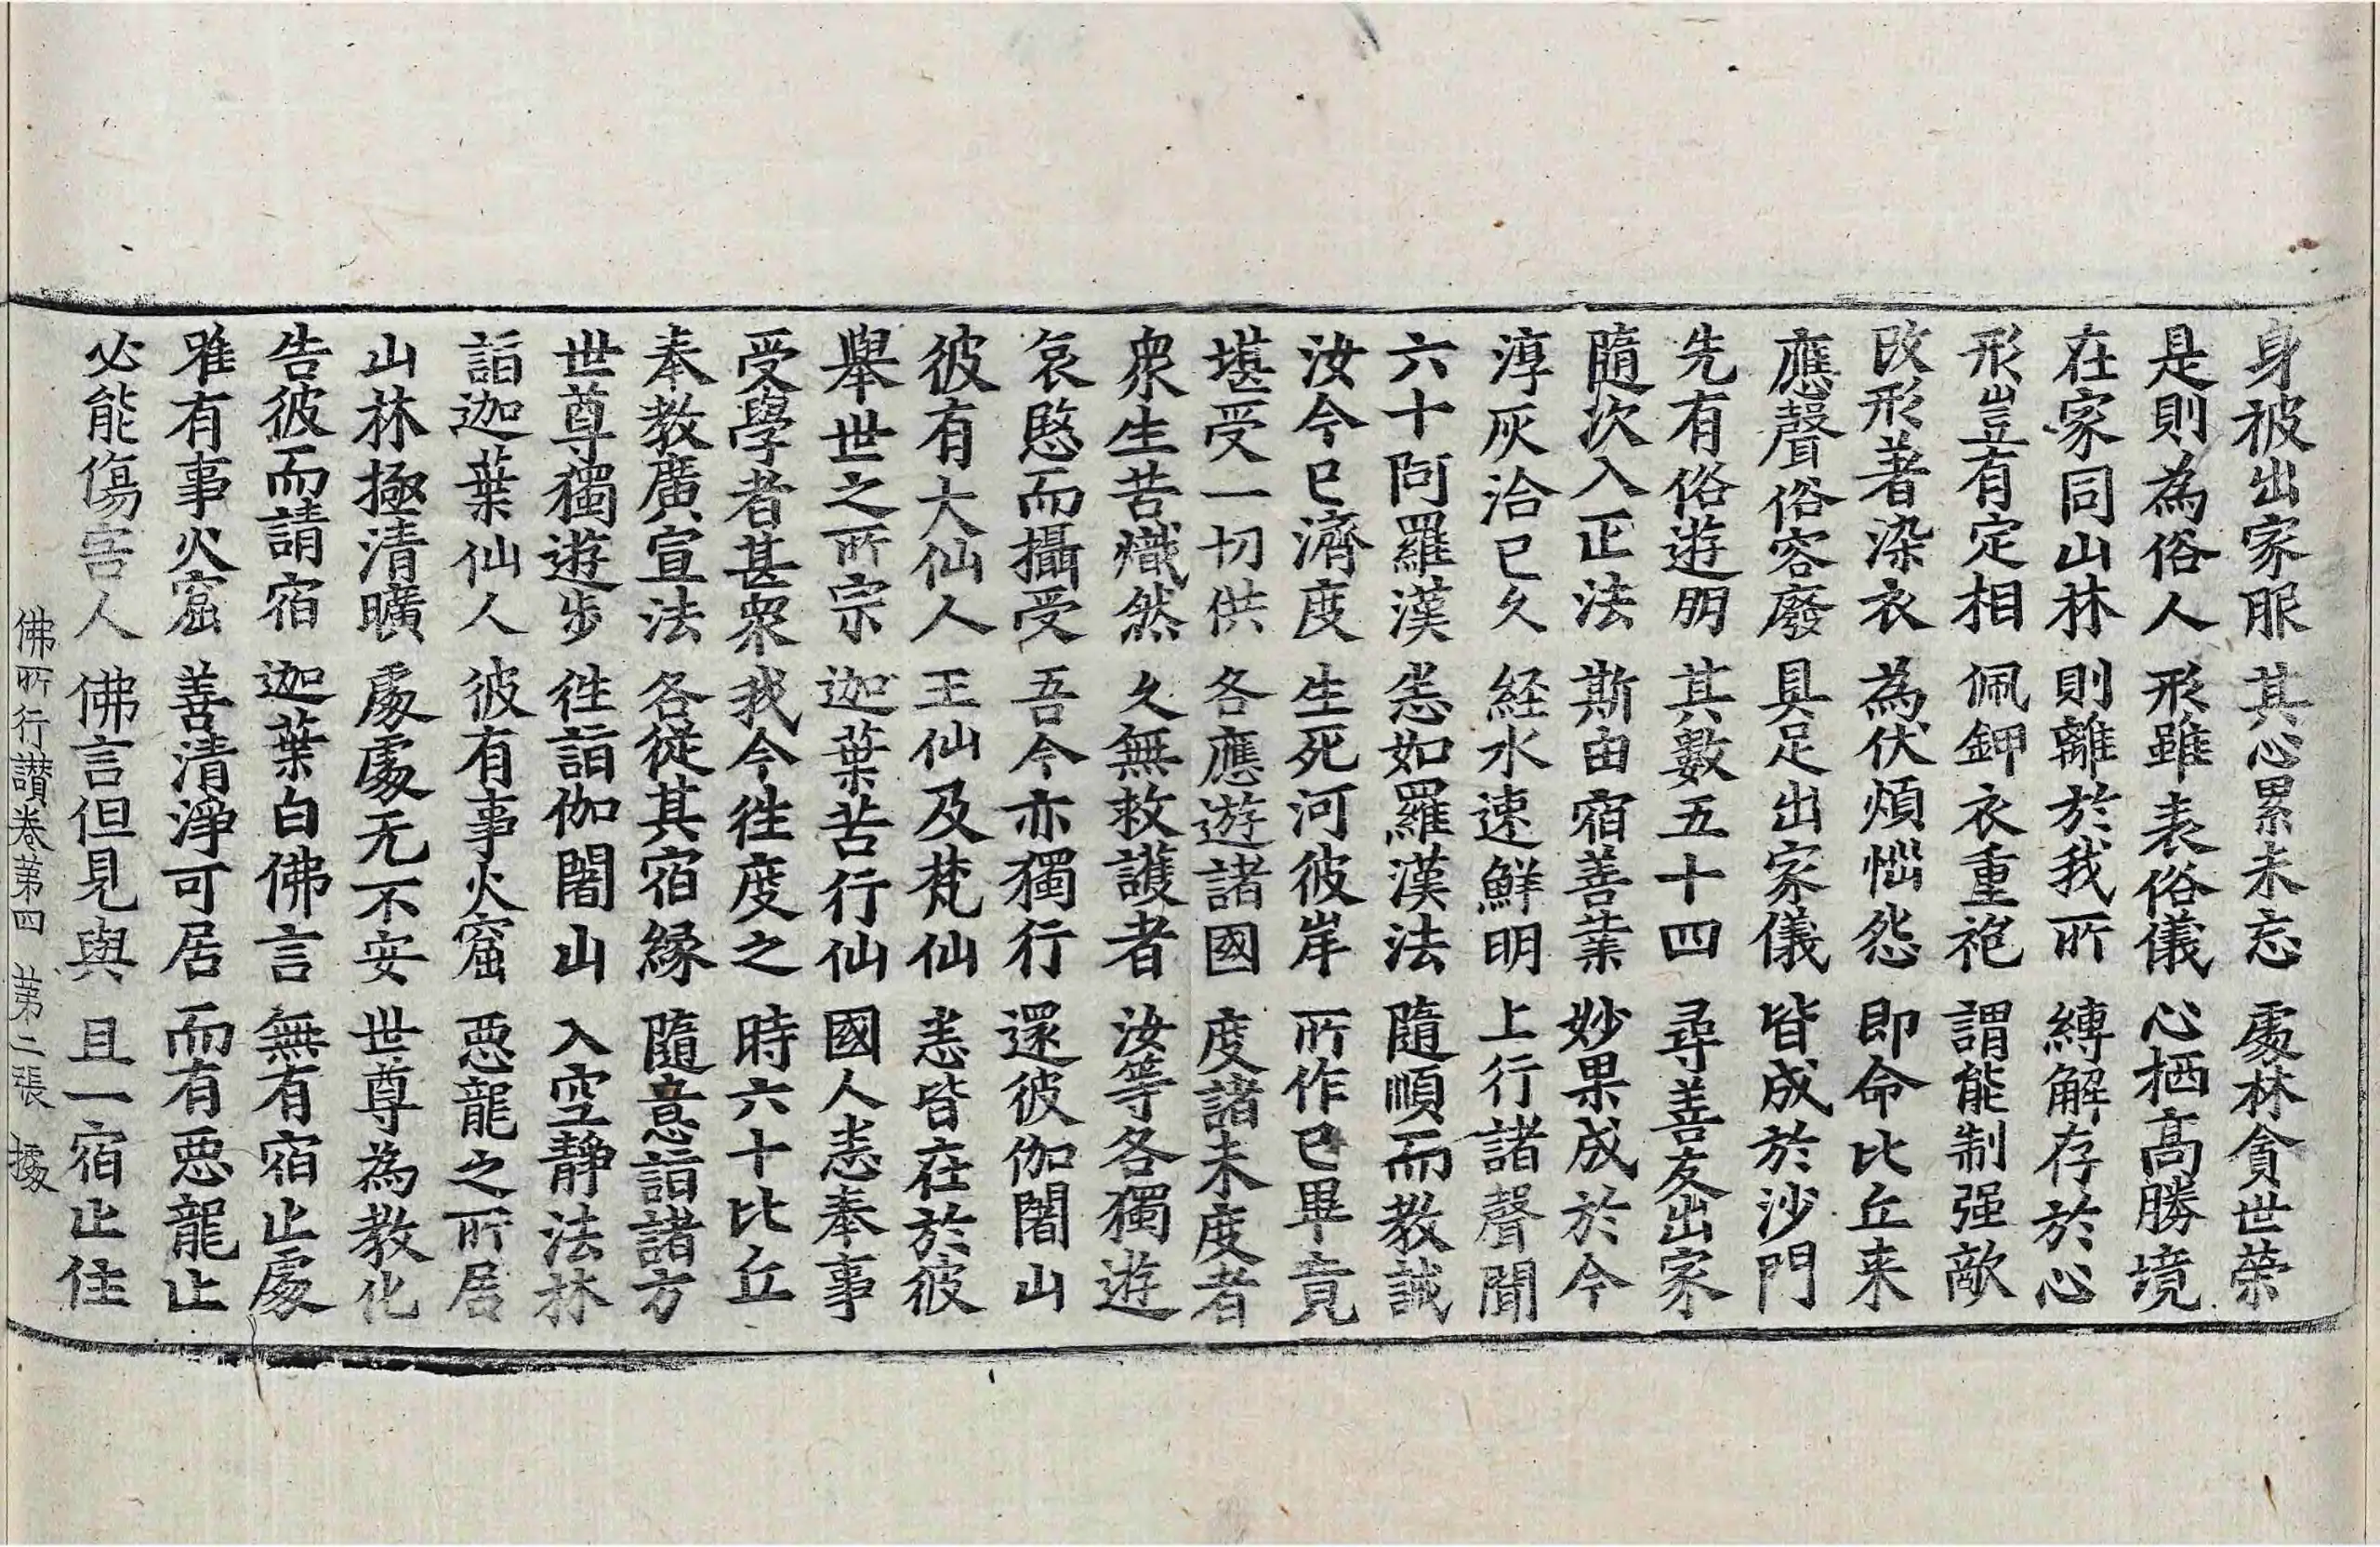 身被出家服 其心累未忘 處林貪世榮
是則為俗人 形雖表俗儀 心栖高勝境
在家同山林 則離於我所 縛解存於心
形豈有定相 佩鉀衣重袍 謂能制强敵
改形著染衣 為伏煩惱怨 即命比丘来
應聲俗容廢 具足出家儀 皆成於沙門
先有俗遊朋 其數五十四 尋善友出家
隨次入正法 斯由宿善業 妙果成於今
淳灰洽已久 経水速鮮明 上行諸聲聞
六十阿羅漢 悉如羅漢法 隨順而教誡
汝今已濟度 生死河彼岸 所作已畢竟
堪受一切供 各應遊諸國 度諸未度者
衆生苦熾然 久無救護者 汝等各獨遊
哀愍而攝受 吾今亦獨行 還彼伽闍山
彼有大仙人 王仙及梵仙 悉皆在於彼
舉世之所宗 迦葉苦行仙 國人悉奉事
受學者甚衆 我今往度之 時六十比丘
奉教廣宣法 各從其宿縁 隨意詣諸方
世尊獨遊步 往詣伽闍山 入空靜法林
詣迦葉仙人 彼有事火窟 惡龍之所居
山林極清曠 處處无不安 世尊為教化
告彼而請宿 迦葉白佛言 無有宿止處
唯有事火窟 善清淨可居 而有惡龍止
必能傷害人 佛言但見與 且一宿止住
佛所行讃卷苐四 苐二張 據